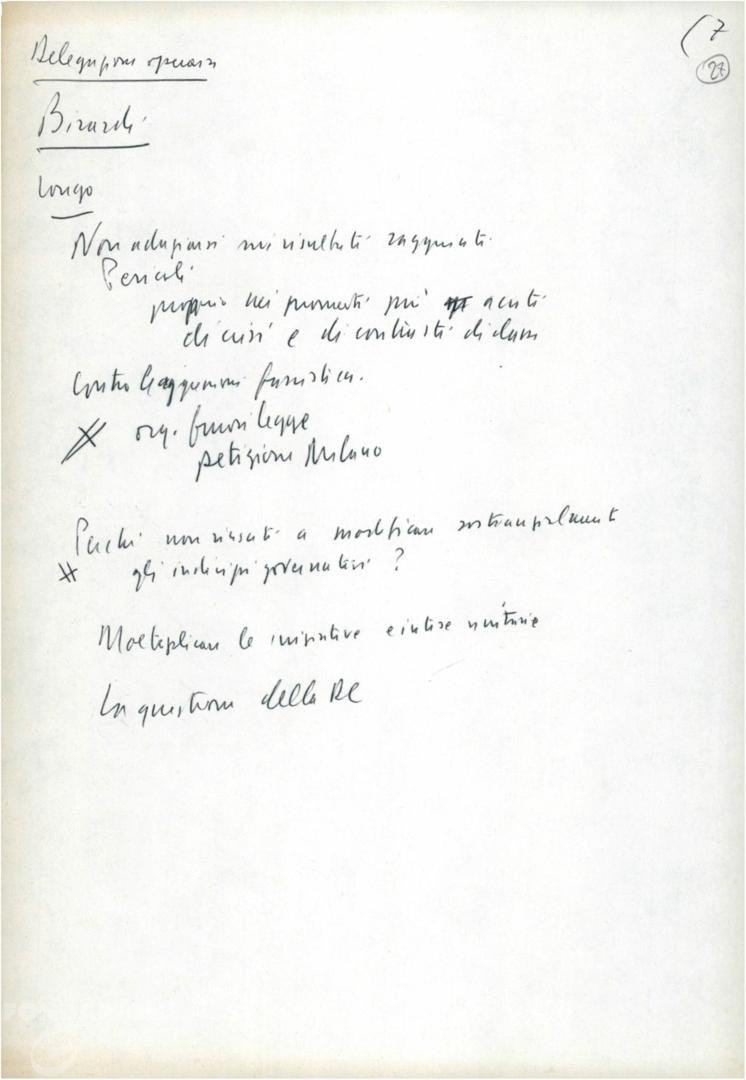 (7
27
Delegazioni operaie
Birardi
Longo
Non adagiarsi sui risultati raggiunti
Pericoli
proprio nei momenti più acuti
di crisi e di contrasti di classe
Contro le aggressioni fasciste.
org. fuori legge
petizione Milano
Perché non riusciti a modificare sostanzialmente
gli indirizzi governativi ?
Moltiplicare le iniziative e intese unitarie
La questione della DC